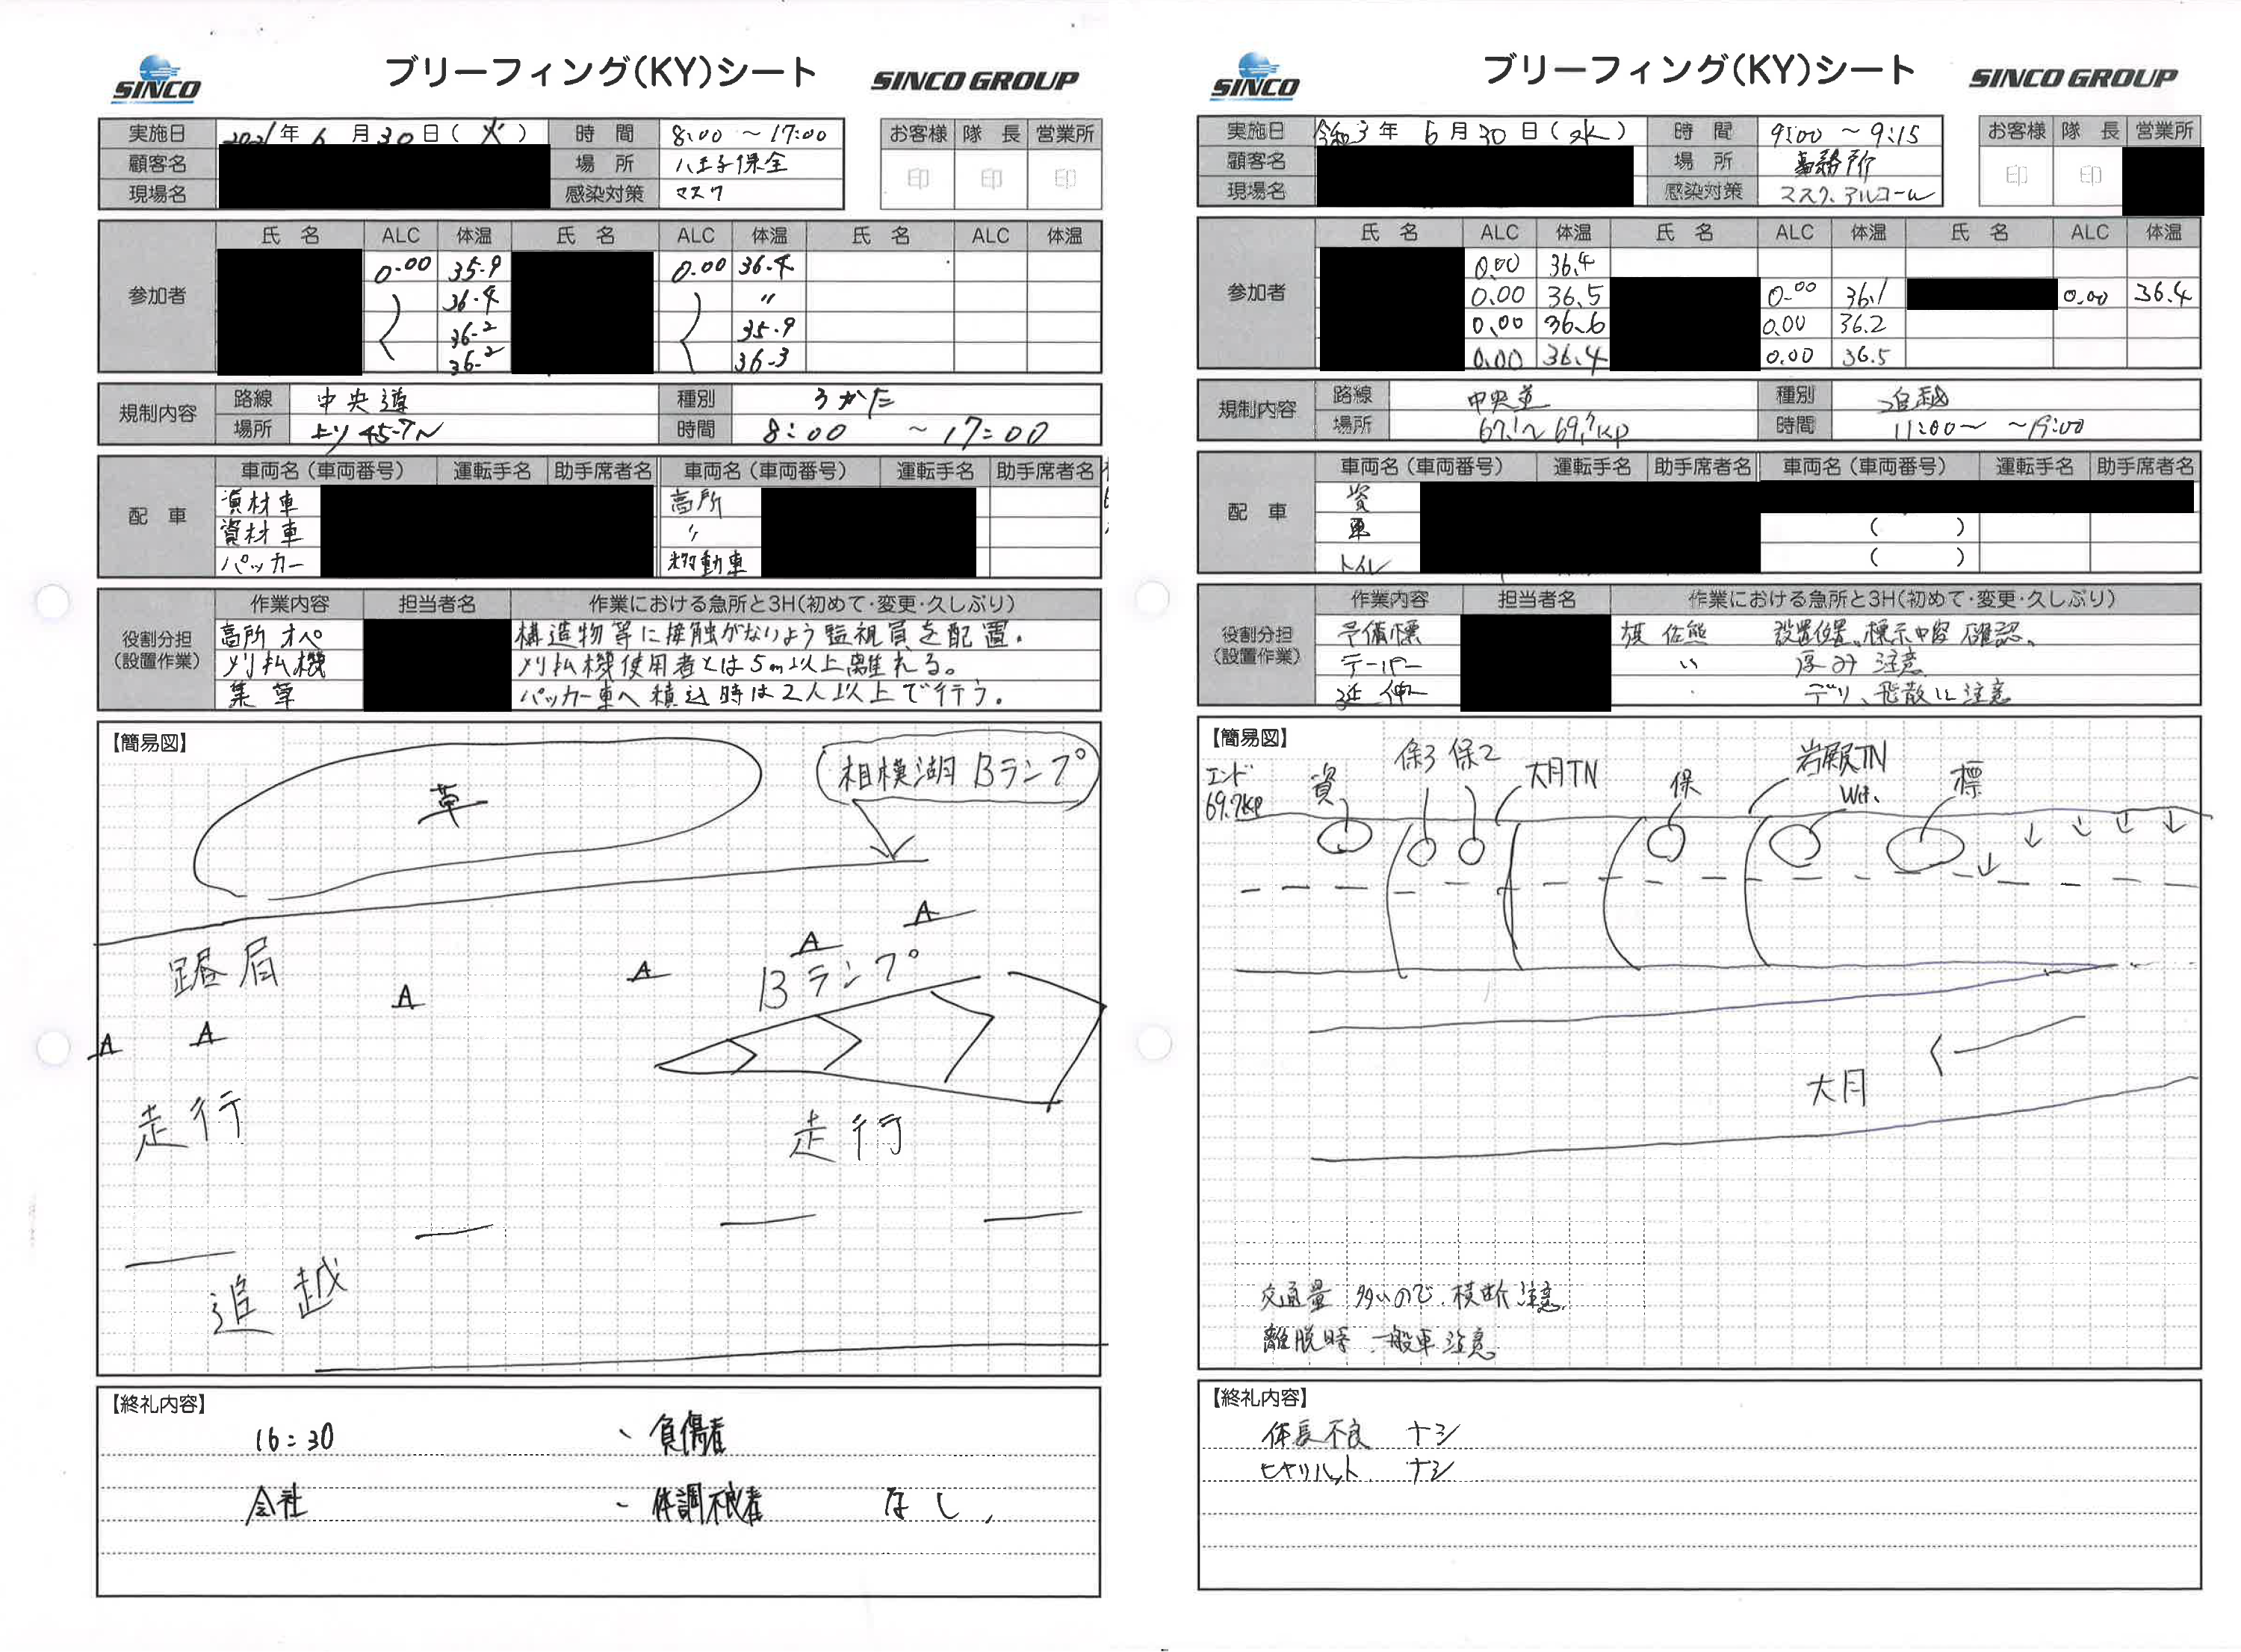 SINCO
ブリーフィング(KY)シート
SINCO GROUP
実施日 2021年 6月30日(火) 時間 8:00 ~ 17:00
お客様 隊長 営業所
顧客名 場所 八王子保全
印 印 印
現場名 感染対策 マスク
氏名 ALC 体温 氏名 ALC 体温 氏名 ALC 体温
参加者
0.00 35.9 0.00 36.4
36.4 〃
36.2 35.9
36.2 36.3
規制内容
路線 中央道 種別 ろかた
場所 上り45.7~ 時間 8:00 ~17:00
配車
車両名(車両番号) 運転手名 助手席者名 車両名(車両番号) 運転手名 助手席者名
資材車 高所
資材車 〃
パッカー 移動車
役割分担
(設置作業)
作業内容 担当者名 作業における急所と3H(初めて・変更・久しぶり)
高所オペ 構造物等に接触がないよう監視員を配置.
刈払機 刈払機使用者とは5m以上離れる。
集草 パッカー車へ積込時は2人以上で行う.
【簡易図】
草
相模湖Bランプ
路肩
Bランプ
走行
走行
追越
【終礼内容】
16:30 、負傷者
会社 、体調不良者 なし.
SINCO
ブリーフィング(KY)シート
SINCO GROUP
実施日 令和3年 6月30日(水) 時間 9:00 ~ 9:15
お客様 隊長 営業所
顧客名 場所 事務所
印 印
現場名 感染対策 マスク、アルコール
氏名 ALC 体温 氏名 ALC 体温 氏名 ALC 体温
参加者
0.00 36.4
0.00 36.5 0.00 36.1 0.00 36.4
0.00 36.6 0.00 36.2
0.00 36.4 0.00 36.5
規制内容
路線 中央道 種別 追越
場所 67.1~69.7KP 時間 11:00~ ~19:00
配車
車両名(車両番号) 運転手名 助手席者名 車両名(車両番号) 運転手名 助手席者名
資
( )
トイレ ( )
役割分担
(設置作業)
作業内容 担当者名 作業における急所と3H(初めて・変更・久しぶり)
予備標 旗 佐熊 設置位置、標示内容確認、
テーパー 〃 厚み注意
延伸 デリ、飛散に注意
【簡易図】
エンド
69.7KP
資 保3 保2 大月TN 保 岩殿TN 標
大月
交通量 多いので、横断注意.
離脱時 一般車注意
【終礼内容】
体長不良 ナシ
ヒヤリハット ナシ